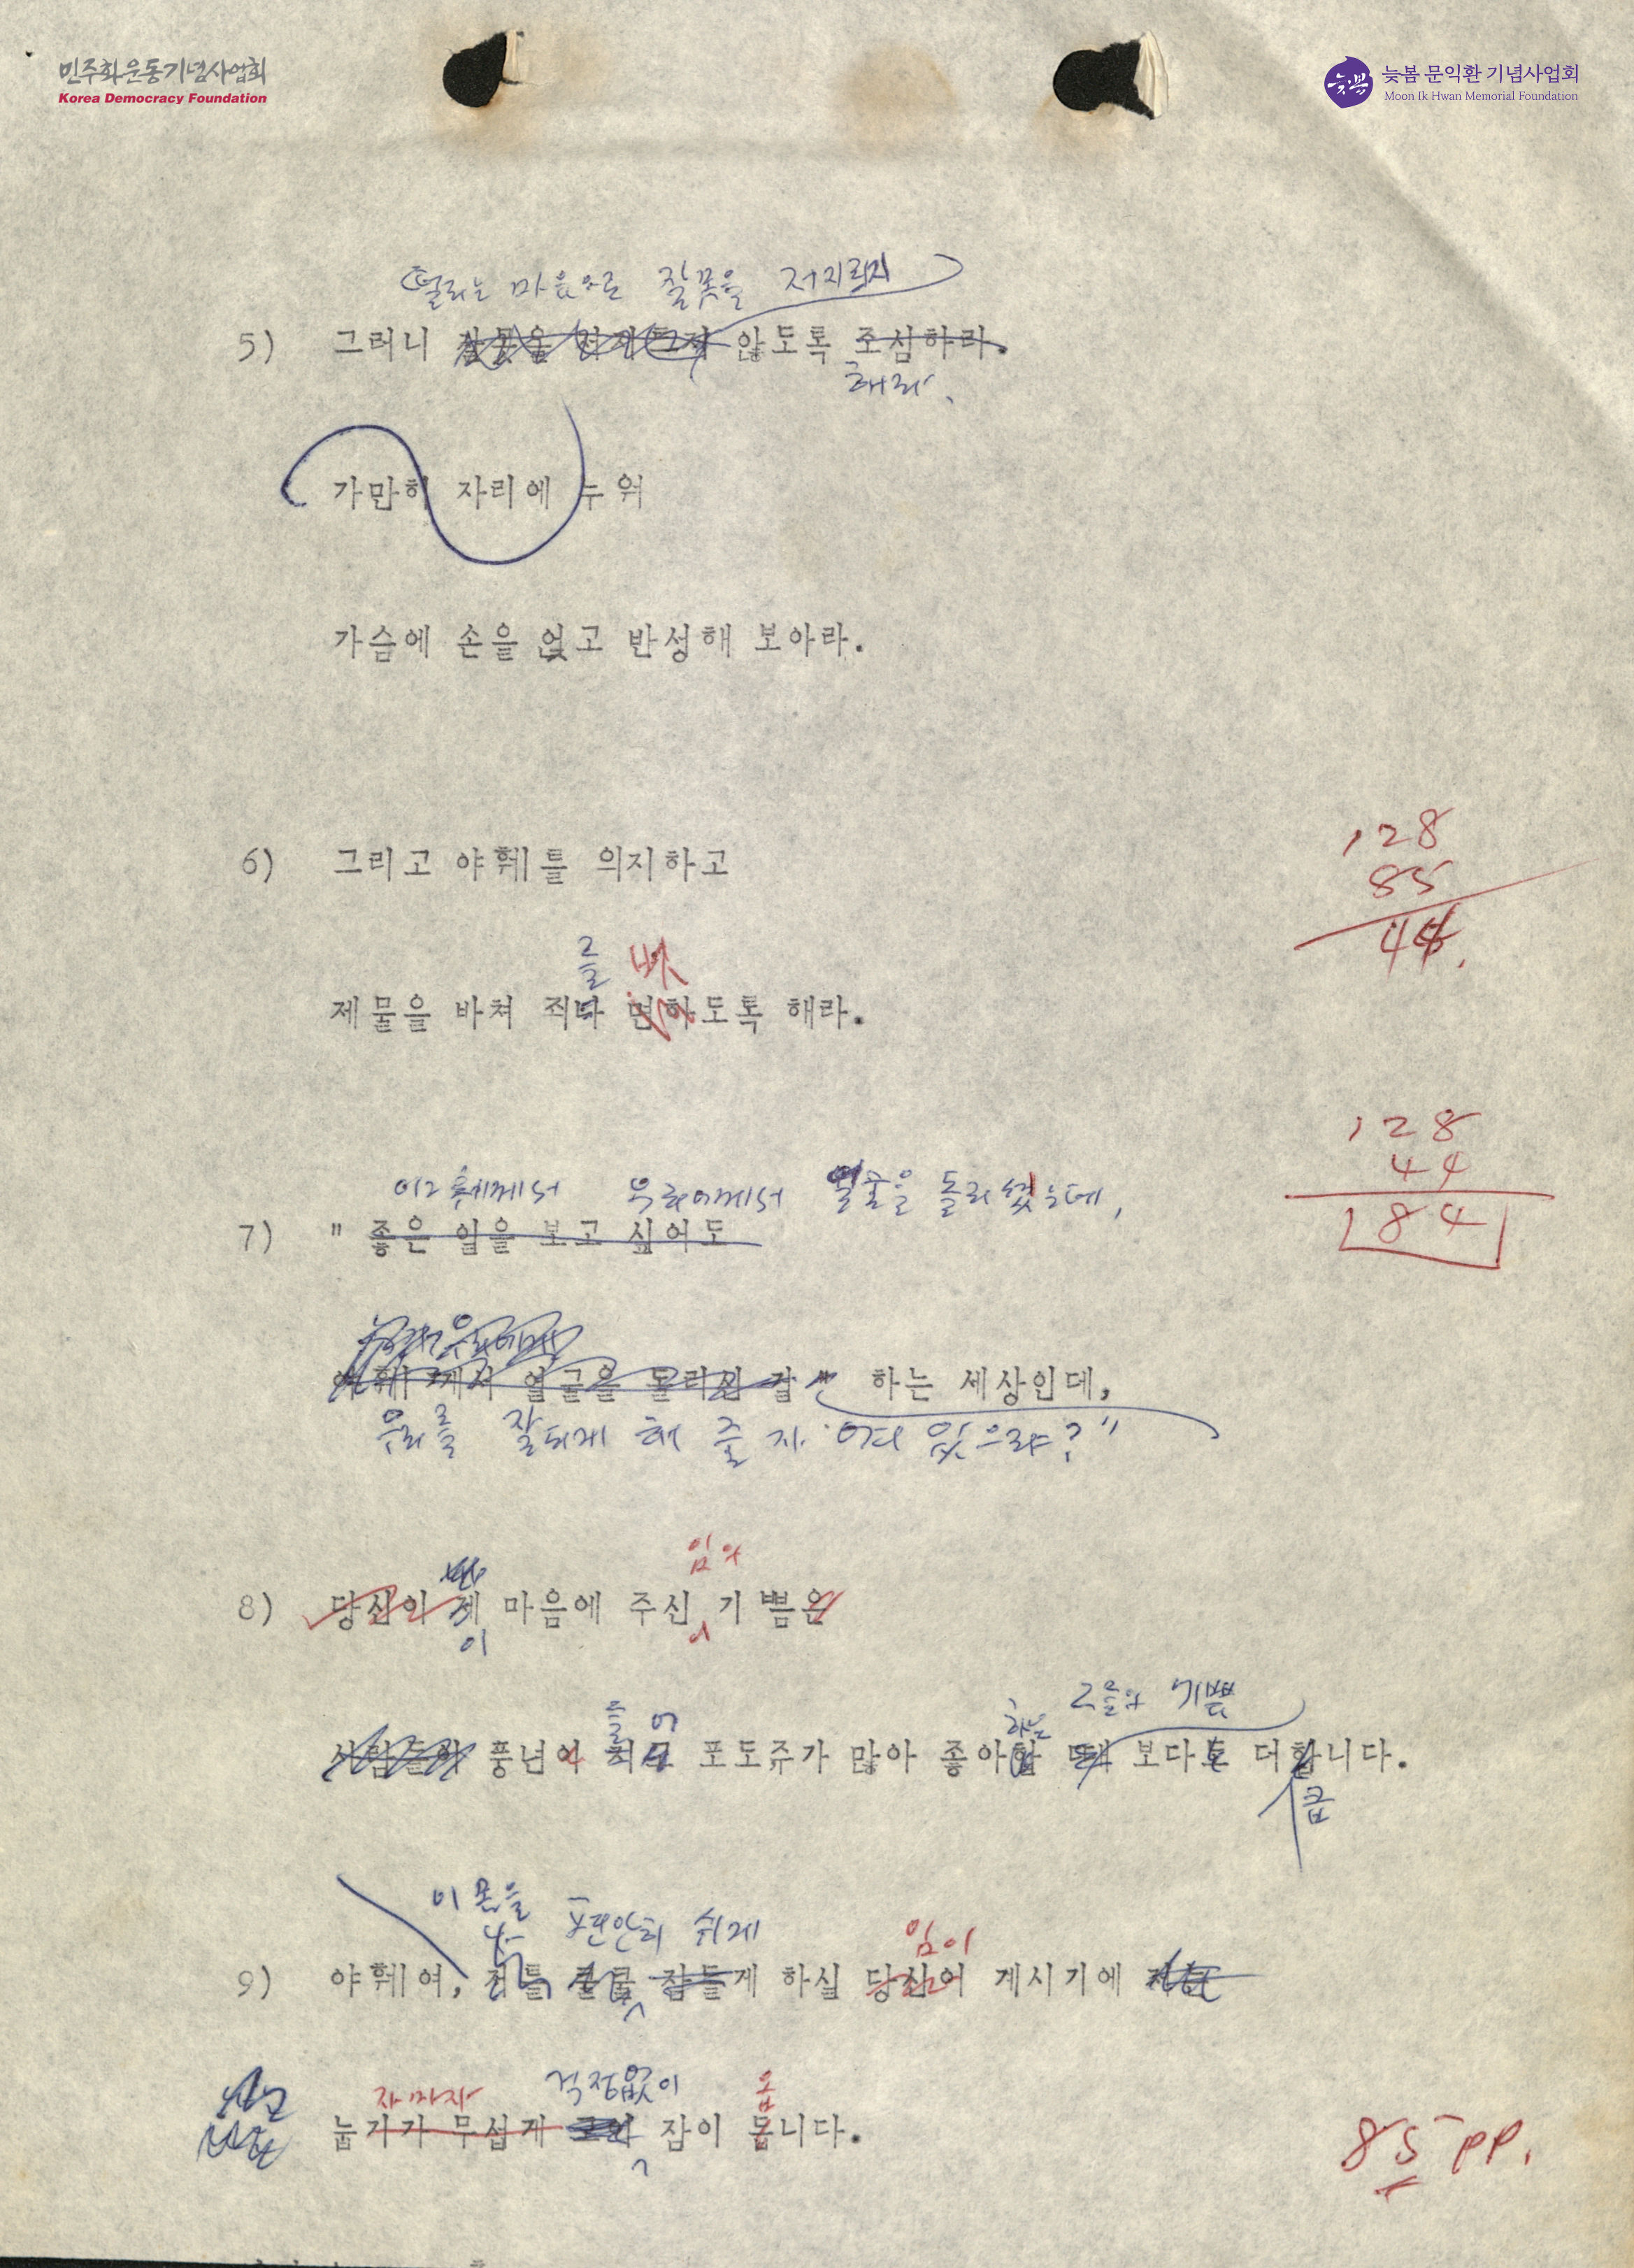 민주화운동기념사업회
Korea Democracy Foundation
늦봄 문익환 기념사업회
Moon Ik Hwan Memorial Foundation
떨리는 마음으로 잘못을 저지르지
5) 그러니 않도록 조심하라.
해라.
가만히 자리에 누워
가슴에 손을 얹고 반성해 보아라.
128
85
44.
6) 그리고 야훼를 의지하고
를 벗
제물을 바쳐 죄다 면하도록 해라.
128
44
184
야훼께서 우리에게서 얼굴을 돌리셨는데,
7) " 좋은 일을 보고 싶어도
야훼께서 얼굴을 돌리신 걸" 하는 세상인데,
우리를 잘되게 해 줄 자 어디 있으랴?"
임의
8) 당신이 제 마음에 주신 기쁨은
이
들 어 하는 그들의 기쁨
사람들이 풍년이 포도주가 많아 좋아할 때 보다도 더합니다.
큽
이 몸을 편안히 쉬게
임이
9) 야훼여, 저를 잠들게 하실 당신이 게시기에
자마자 걱정없이 옵
눕기가 무섭게 잠이 듭니다.
85 pp.